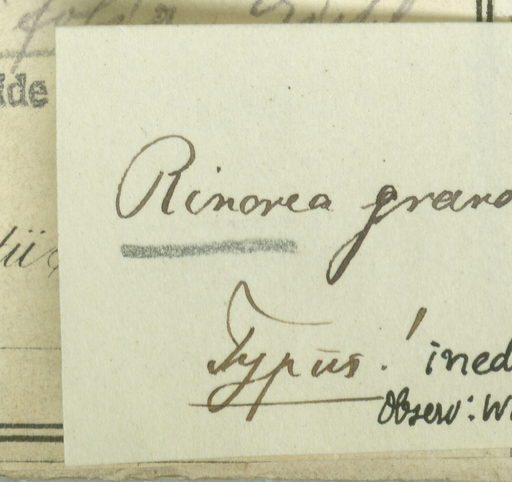 ide
Rinorea grand
Typus! ined
Observ: W